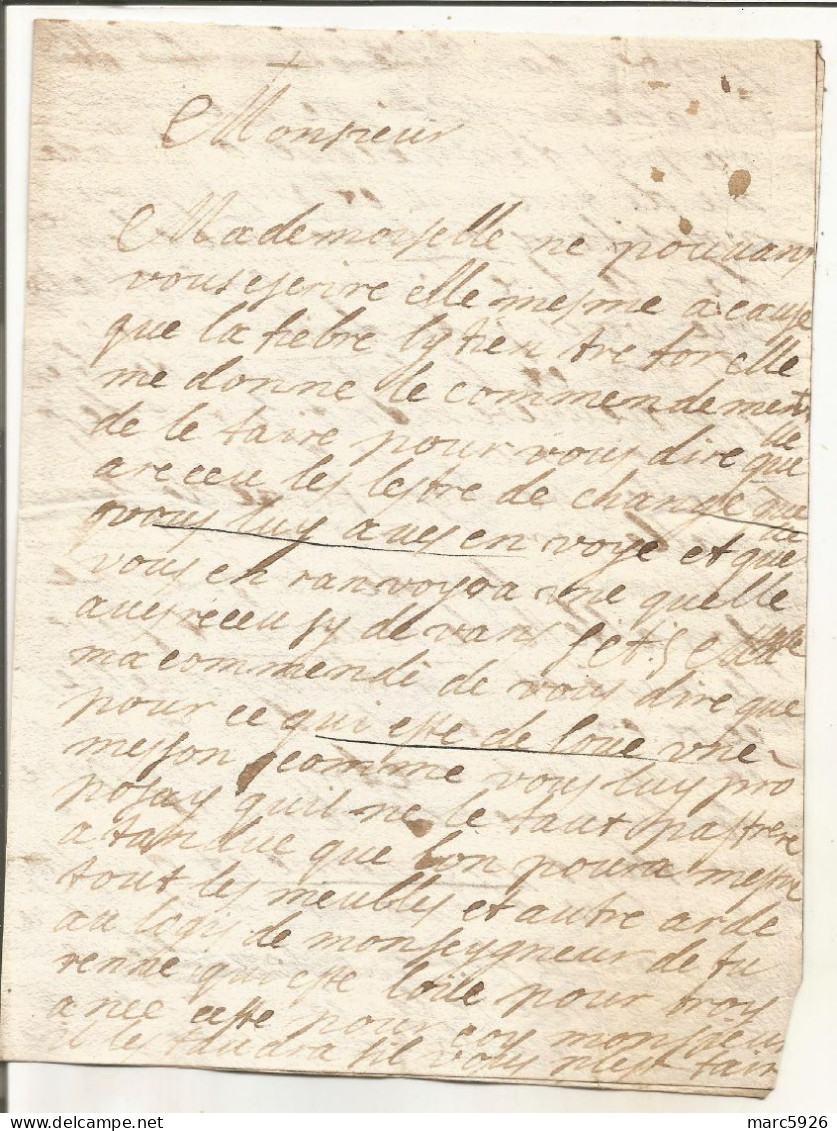 Monsieur
Mademoiselle ne pouvans
vous escrire elle mesme a cause
que la fiebre ly tien tre for elle
me donne le commendement
de le faire pour vous dire que
elle
a receu les lestre de change que
vous luy aves en voyé et que
vous en ranvoyra une quelle
aves receu sy devans
ma commendé de vous dire que
pour ce qui este de loué une
messon comme vous luy pro
posay quil ne le faut pas frere
atandue que lon poura mestre
tout les meubles et autre arde
au logis de monseygneur de tu
renne qui este loüé pour troy
anee este pour coy monsieur
il les faudra sil vous plest fair
marc5926